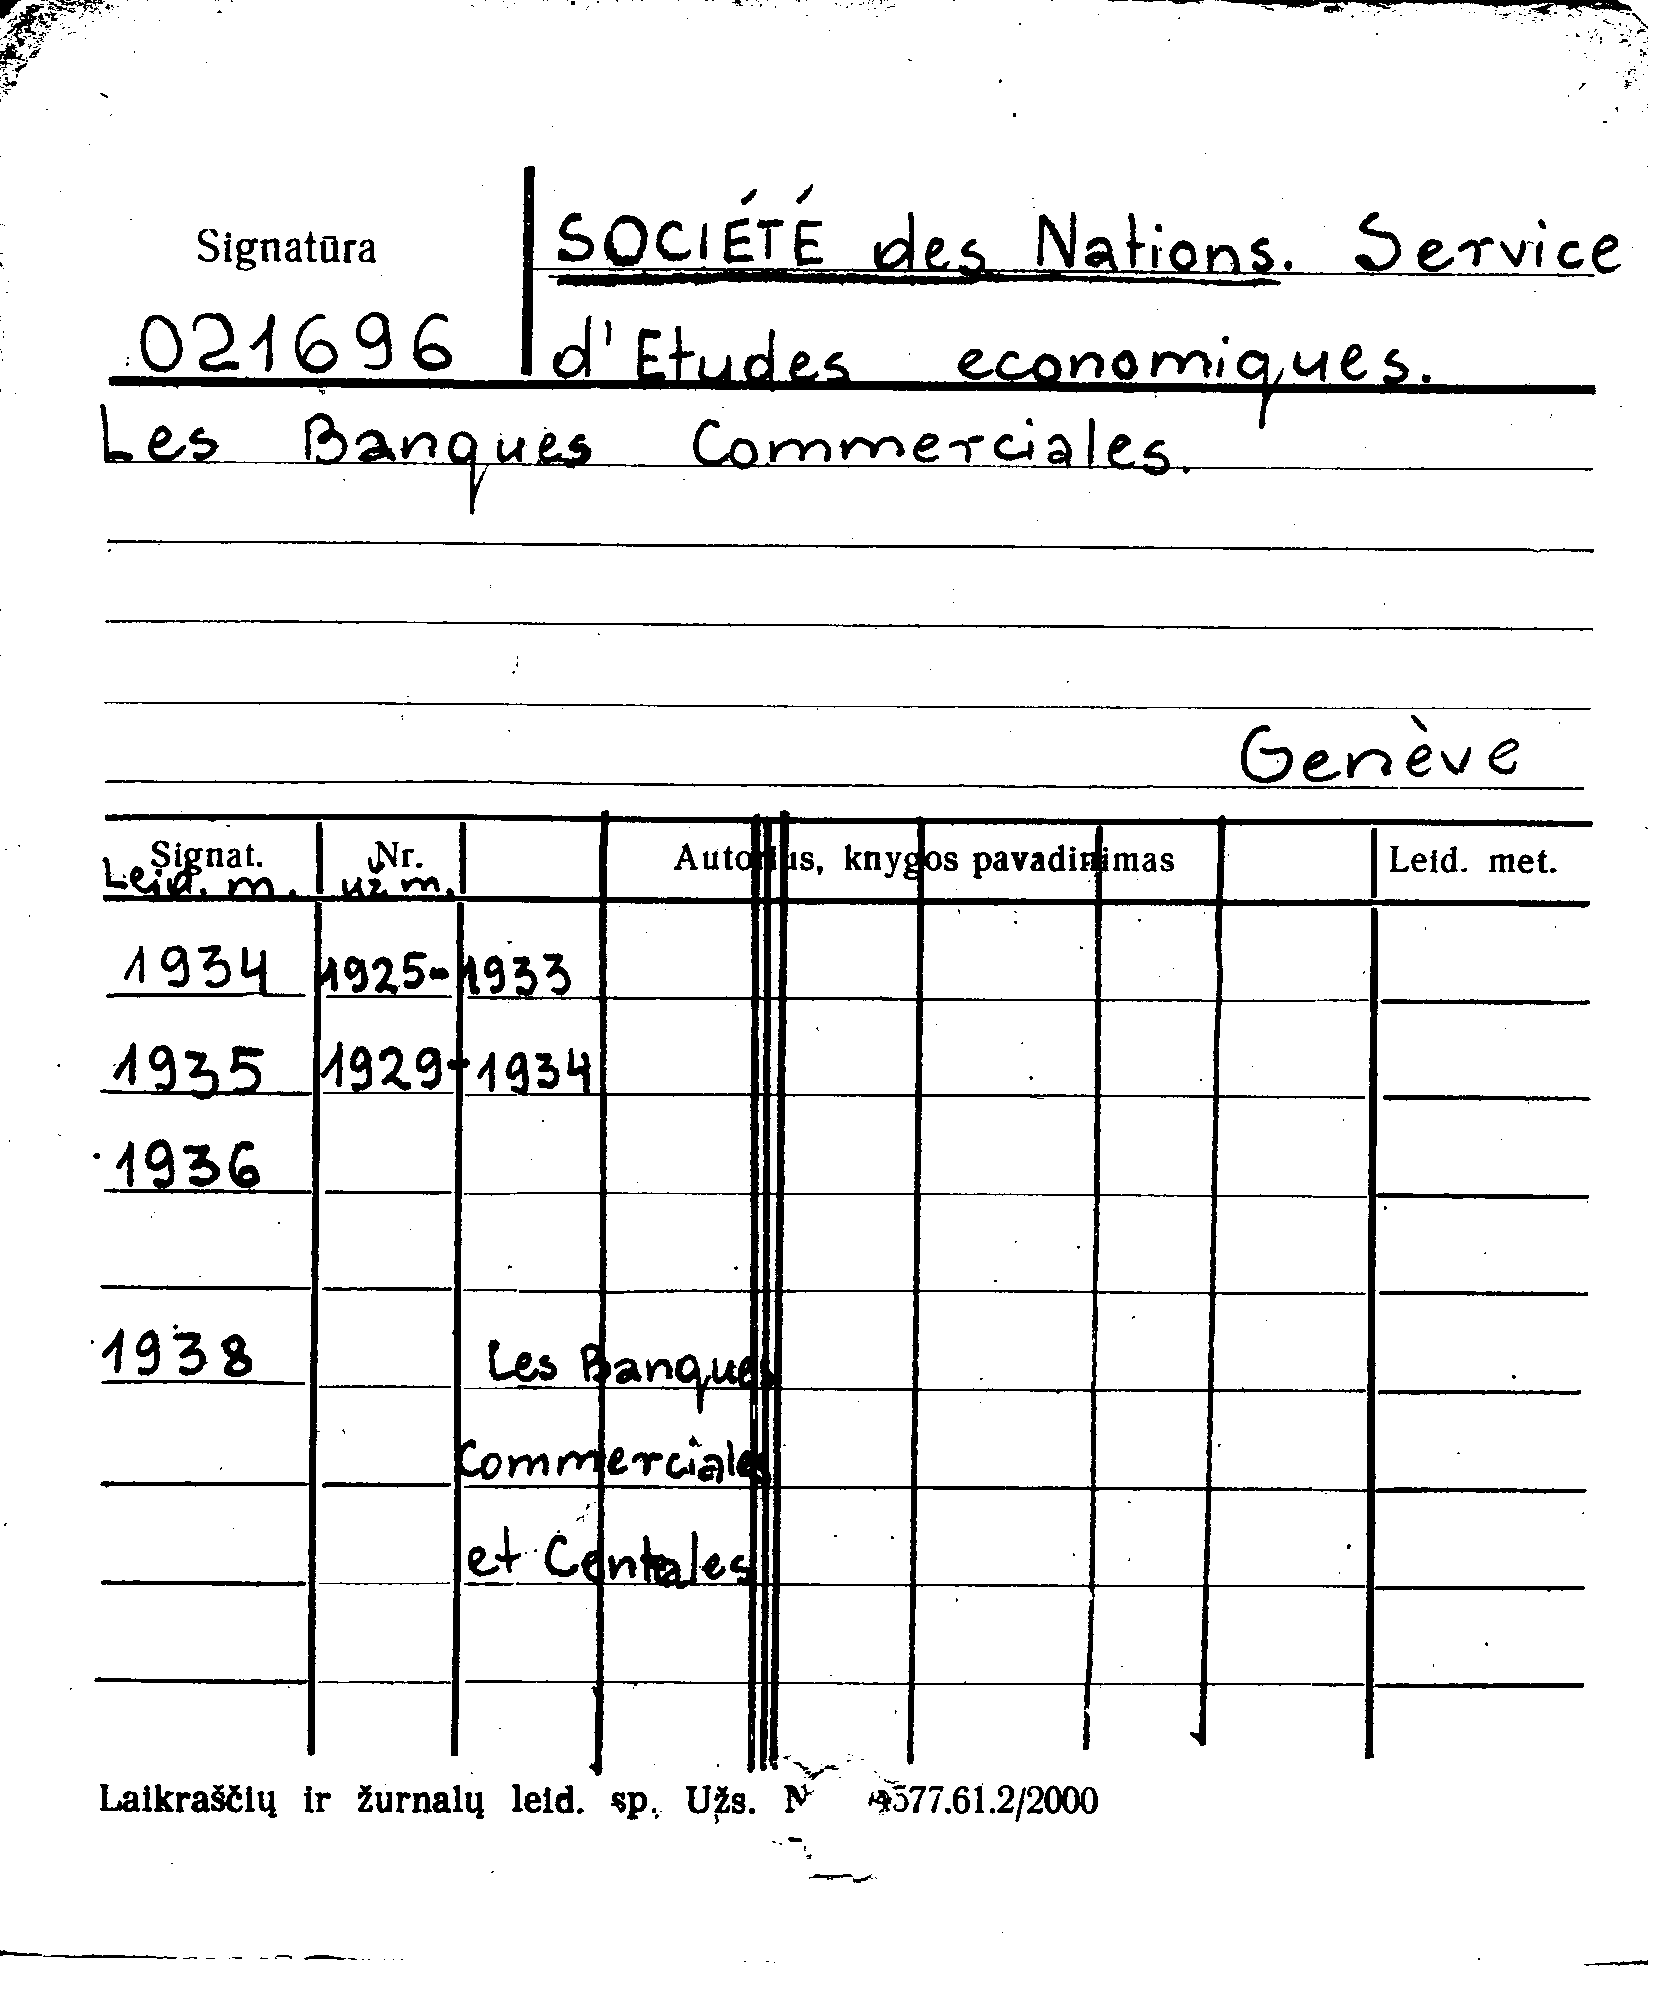 Signatūra
SOCIÉTÉ des Nations. Service
021696
d'Etudes economiques.
Les Banques Commerciales.
Genève
Signat. Nr. Autorius, knygos pavadinimas Leid. met.
Leid. m. už m.
1934 1925-1933
1935 1929-1934
1936
1938 Les Banques
Commerciales
et Centrales
Laikraščių ir žurnalų leid. sp. Užs. 577.61.2/2000